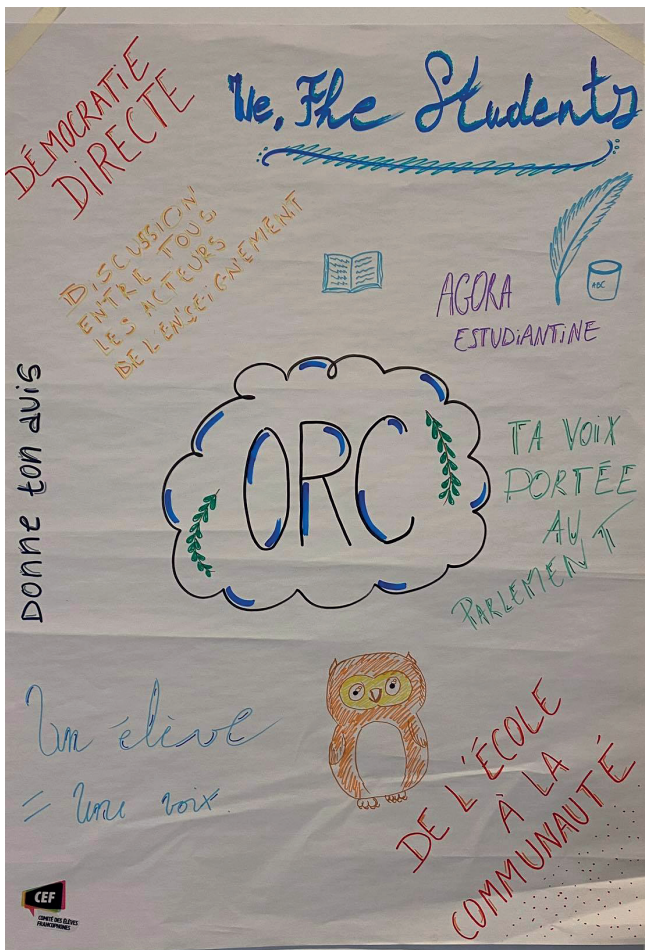 DÉMOCRATIE
DIRECTE
We, The Students
DISCUSSION
ENTRE TOUS
LES ACTEURS
DE L'ENSEIGNEMENT
ABC
AGORA
ESTUDIANTINE
Donne ton avis
ORC
TA VOIX
PORTÉE
AU
PARLEMENT
Un élève
= Une voix.
DE L'ÉCOLE
À LA
COMMUNAUTÉ
CEF
COMITÉ DES ÉLÈVES
FRANCOPHONES